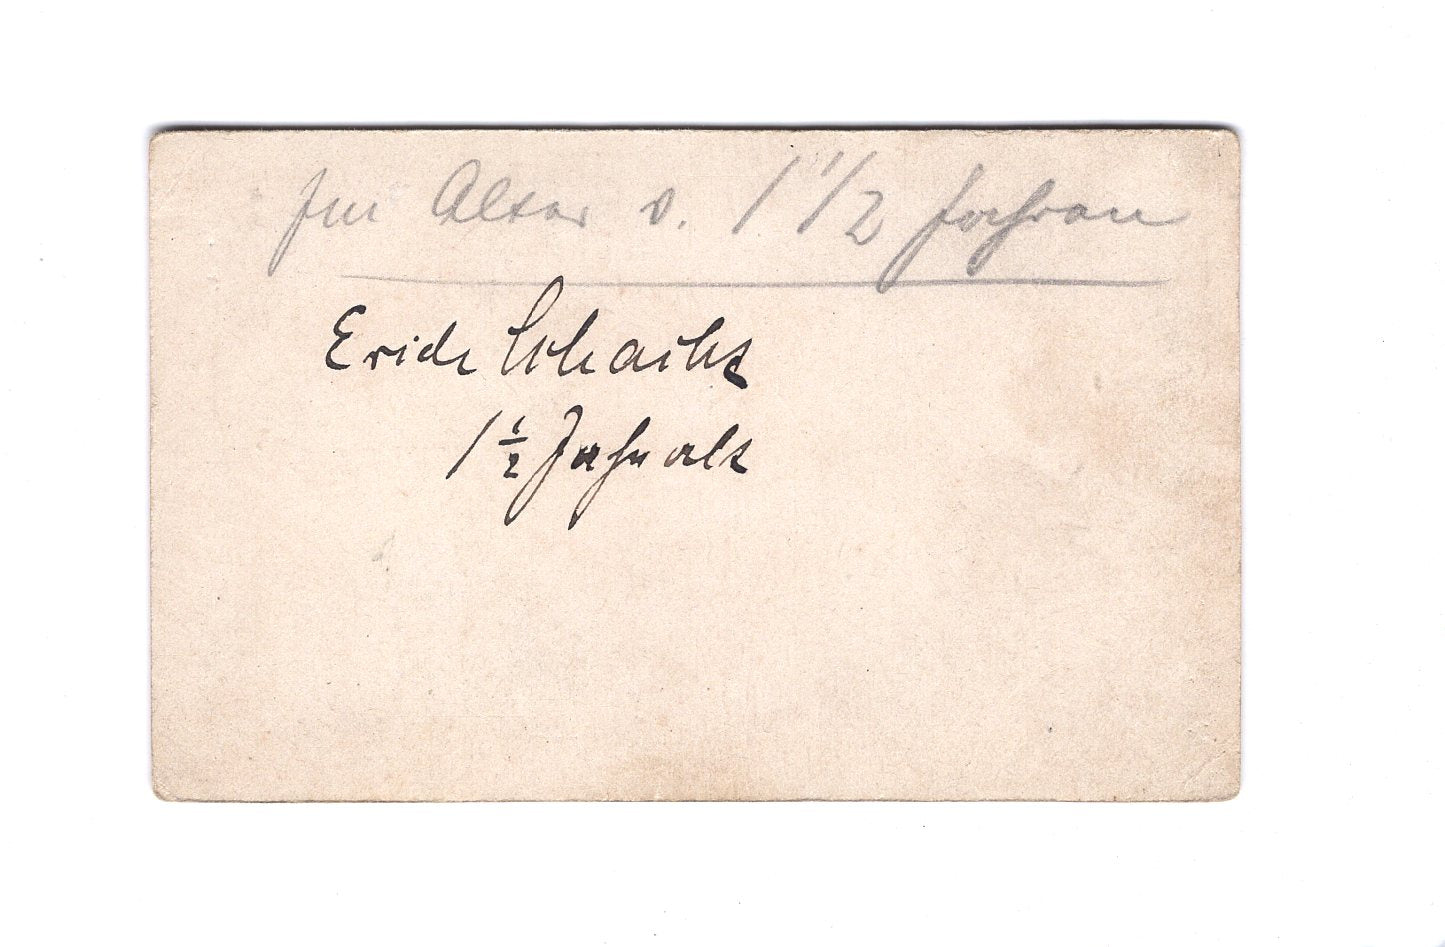 Im Alter v. 1 1/2 Jahren
Erich Schacht
1 1/2 Jahr alt